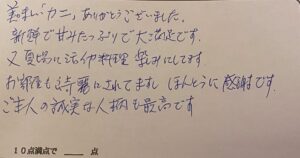 美味しい「カニ」ありがとうございました。
新鮮で甘みたっぷりで大満足です。
又夏場に活イカ料理楽みにしてます
お部屋も綺麗にされてますし ほんとうに感謝です。
ご主人の誠実な人柄も最高です
10点満点で ____ 点